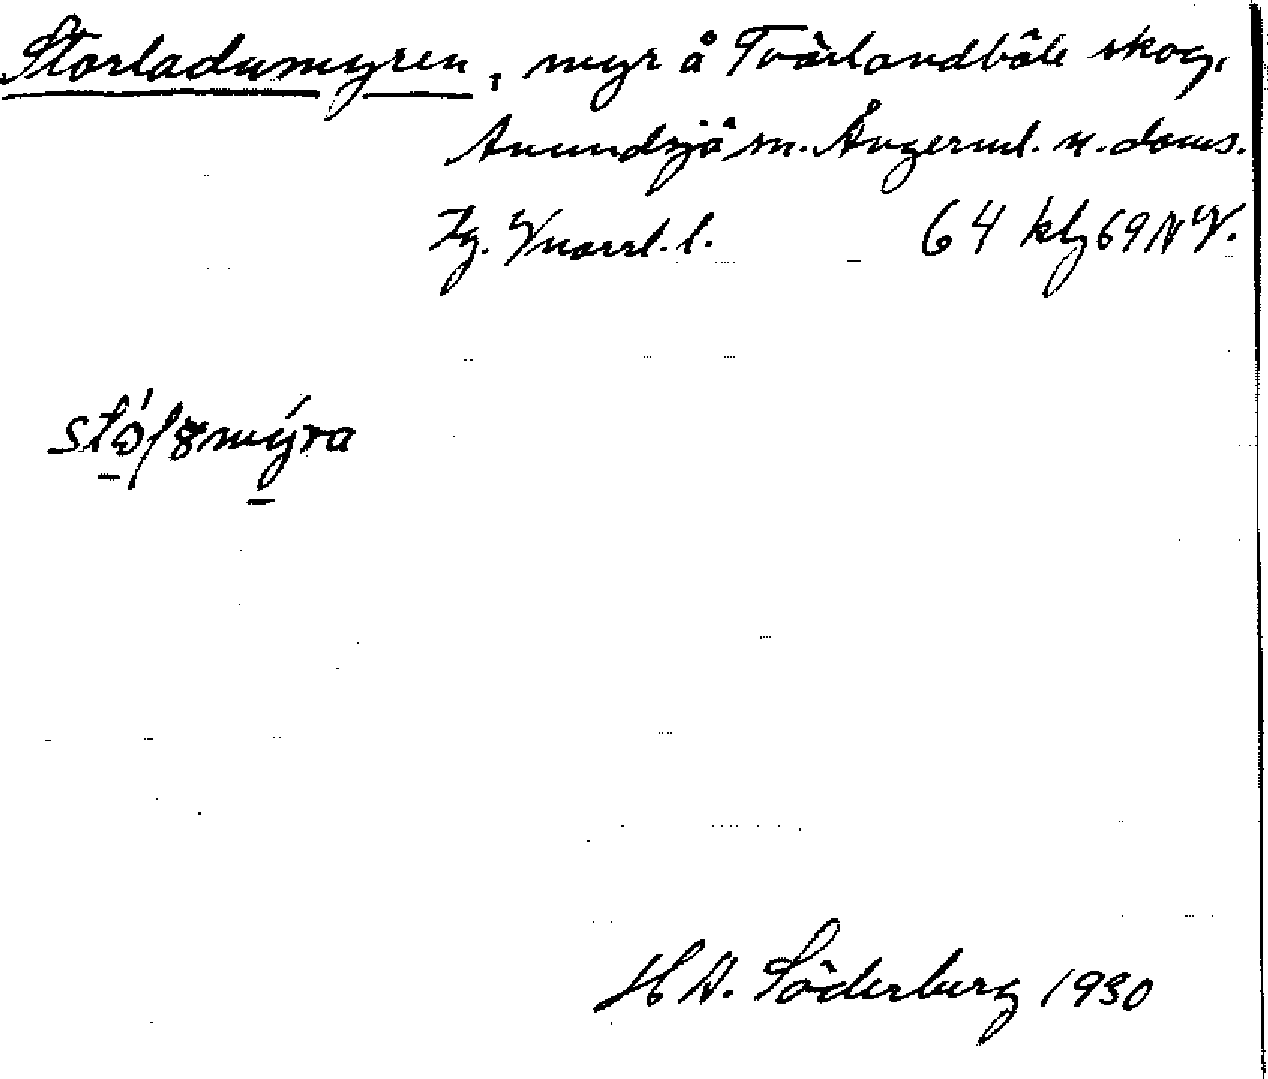 Storladumyren, myr å Tvärlandböle skog,
Anundsjö sn. Ångerml. n. doms.
Lg. Vnorrl. l. 64 klg 69 NV.
H A. Söderberg 1930